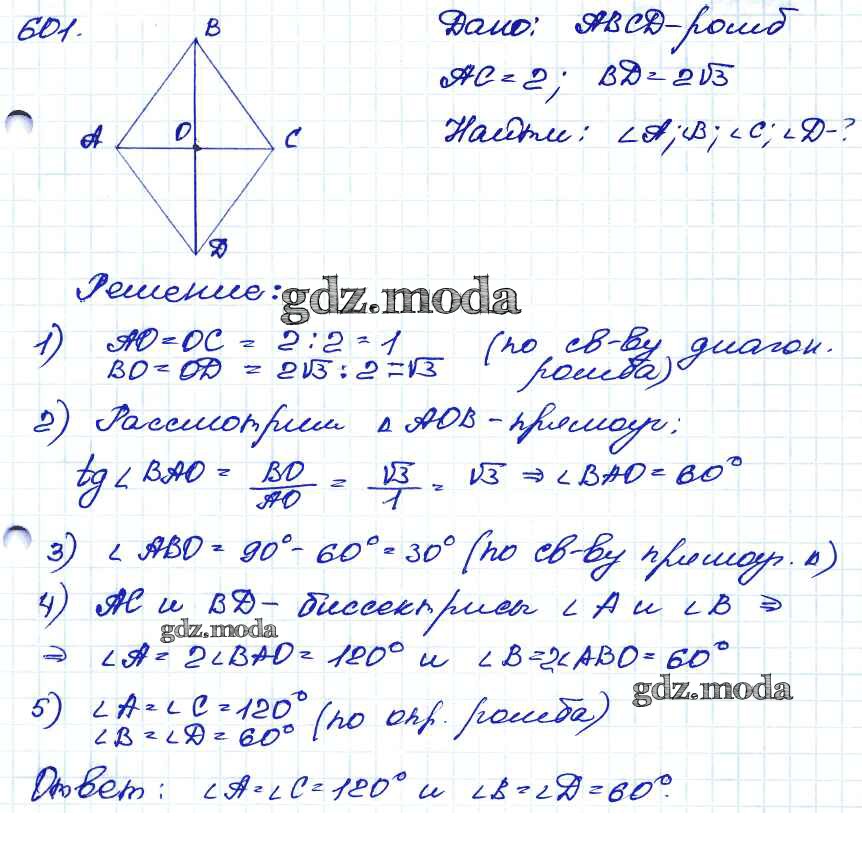 601.
B
A O C
D
Дано: ABCD-ромб
AC = 2; BD = 2√3
Найти: ∠A; ∠B; ∠C; ∠D-?
Решение:
gdz.moda
1) AO = OC = 2 : 2 = 1 (по св-ву диагон.
BO = OD = 2√3 : 2 = √3 ромба)
2) Рассмотрим △ AOB - прямоуг;
tg ∠ BAO = BO/AO = √3/1 = √3 ⇒ ∠BAO = 60°
3) ∠ ABO = 90° - 60° = 30° (по св-ву прямоуг. △)
4) AC и BD - биссектрисы ∠ A и ∠ B ⇒
gdz.moda
⇒ ∠A = 2∠BAO = 120° и ∠B = 2∠ABO = 60°
gdz.moda
5) ∠A = ∠C = 120° (по опр. ромба)
∠B = ∠D = 60°
Ответ: ∠A = ∠C = 120° и ∠B = ∠D = 60°.